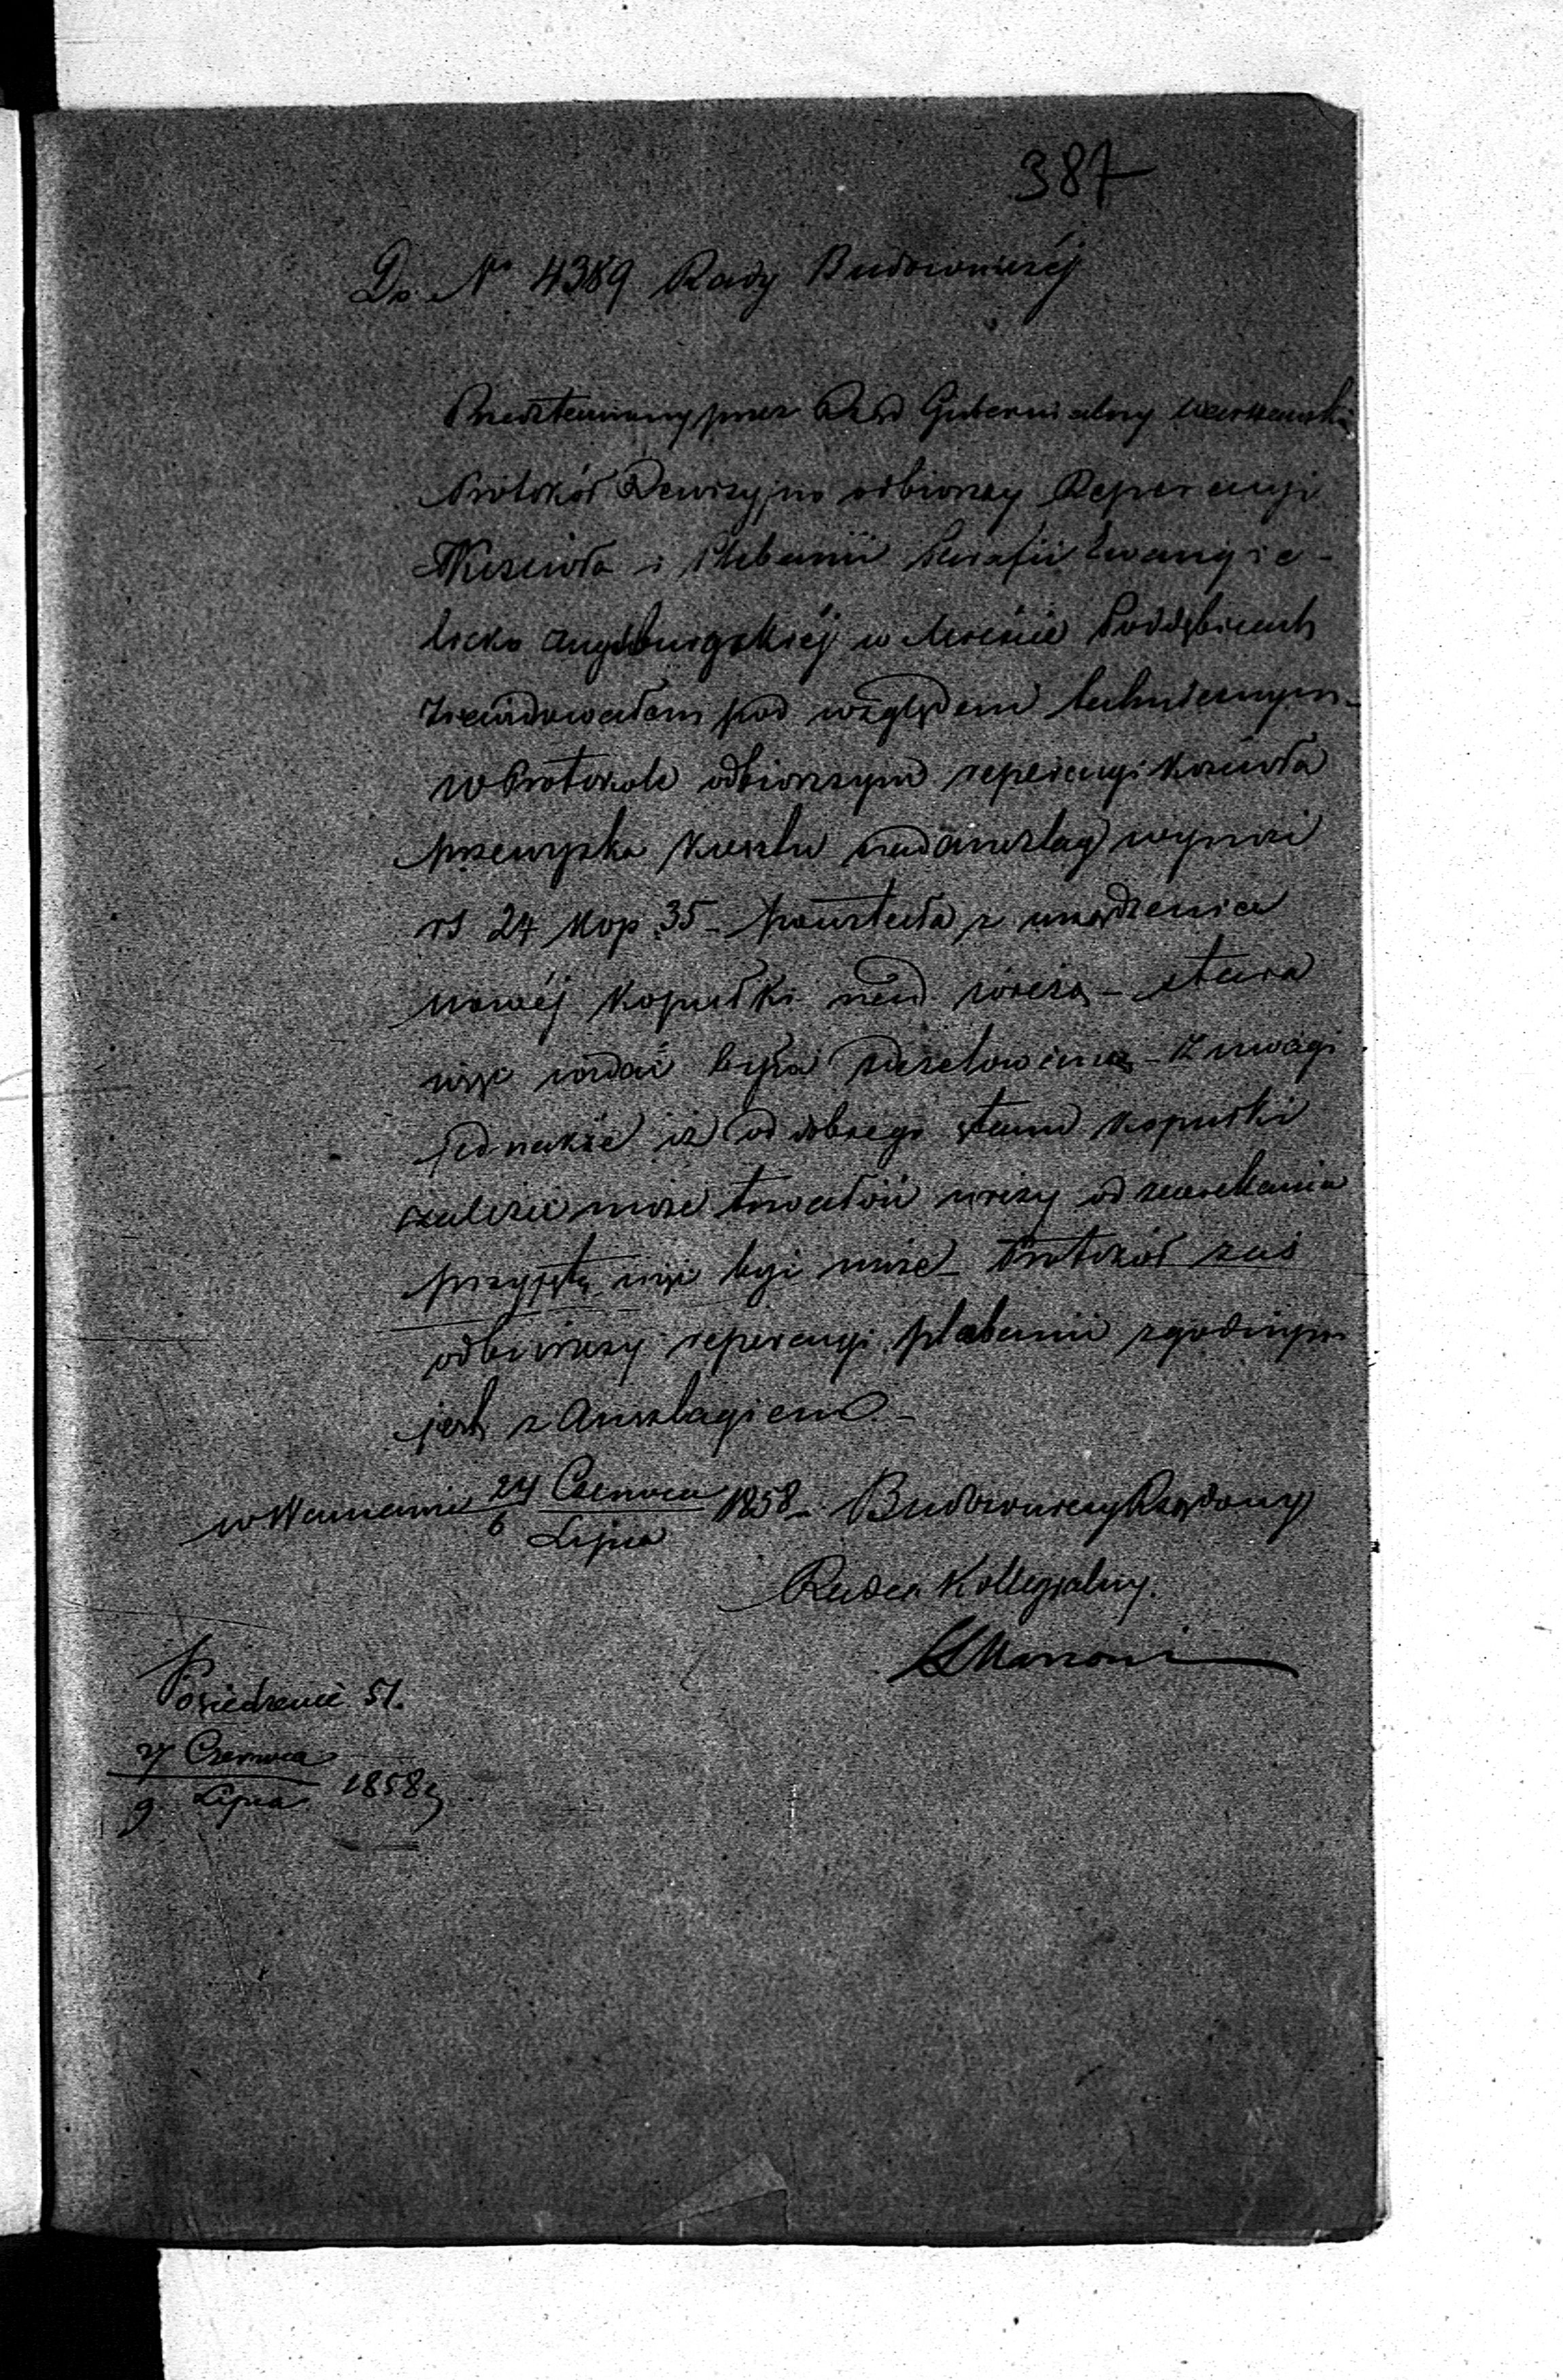 387
Do No 4389 Rady Budowniczéj
Przedstawiony przez Rząd Gubernialny Warszawski
Protokół Rewizyjno odbiorczy Reperacyi
Kościoła i Plebanii Parafii Ewangie-
licko Augsburgskiéj w Mieście Poddębicach
zrewidowałem pod względem technicznym-
w Protokole odbiorczym reperacyi kościoła
przewyżka kosztu nad anszlag wynosi
rs 24 kop 35 - powstała z urządzenia
nowéj kopułki nad wieżą - stara
więc widać była - Z uwagi
jednakże iż od dobrego stanu kopułki
zależeć może trwałość wieży od zaciekania
przyjętą więc być może - Protokół zaś
odbiorczy reperacyi plebanii zgodnym
jest z Anszlagiem. -
w Warszawie 24 Czerwca / 6 Lipca 1858 - Budowniczy Rządowy
Radca Kollegialny.
Marconi
Posiedzenie 51.
27 Czerwca / 9 Lipca 1858